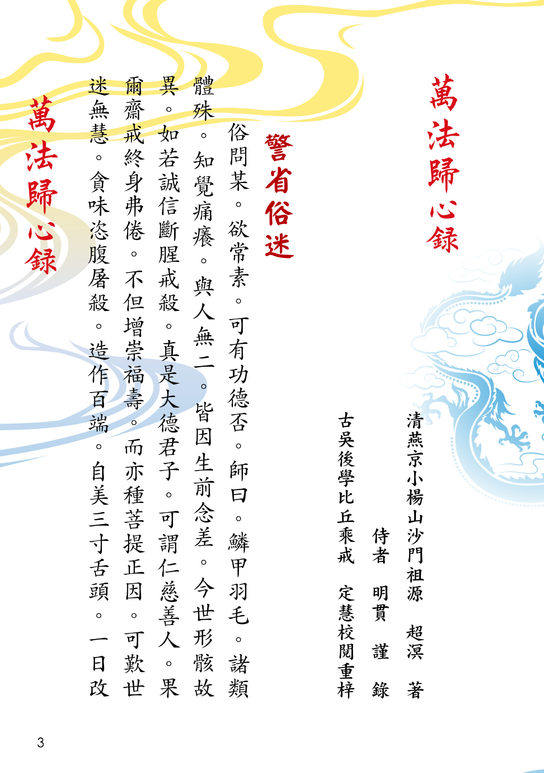 萬法歸心録
清燕京小楊山沙門祖源 超溟 著
侍者 明貫 謹 錄
古吳後學比丘乘戒 定慧校閱重梓
警省俗迷
俗問某。欲常素。可有功德否。師曰。鱗甲羽毛。諸類
體殊。知覺痛癢。與人無二。皆因生前念差。今世形骸故
異。如若誠信斷腥戒殺。真是大德君子。可謂仁慈善人。果
爾齋戒終身弗倦。不但增崇福壽。而亦種菩提正因。可歎世
迷無慧。貪味恣腹屠殺。造作百端。自美三寸舌頭。一日改
萬法歸心録
3